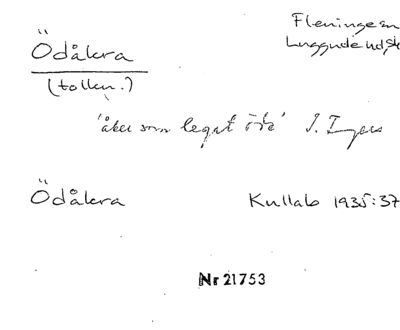 Fleninge sn
Luggude hd Sk
Ödåkra
(tolkn.)
'åker som legat öde' I. Ingers
Ödåkra
Kullab 1935:37
Nr 21753